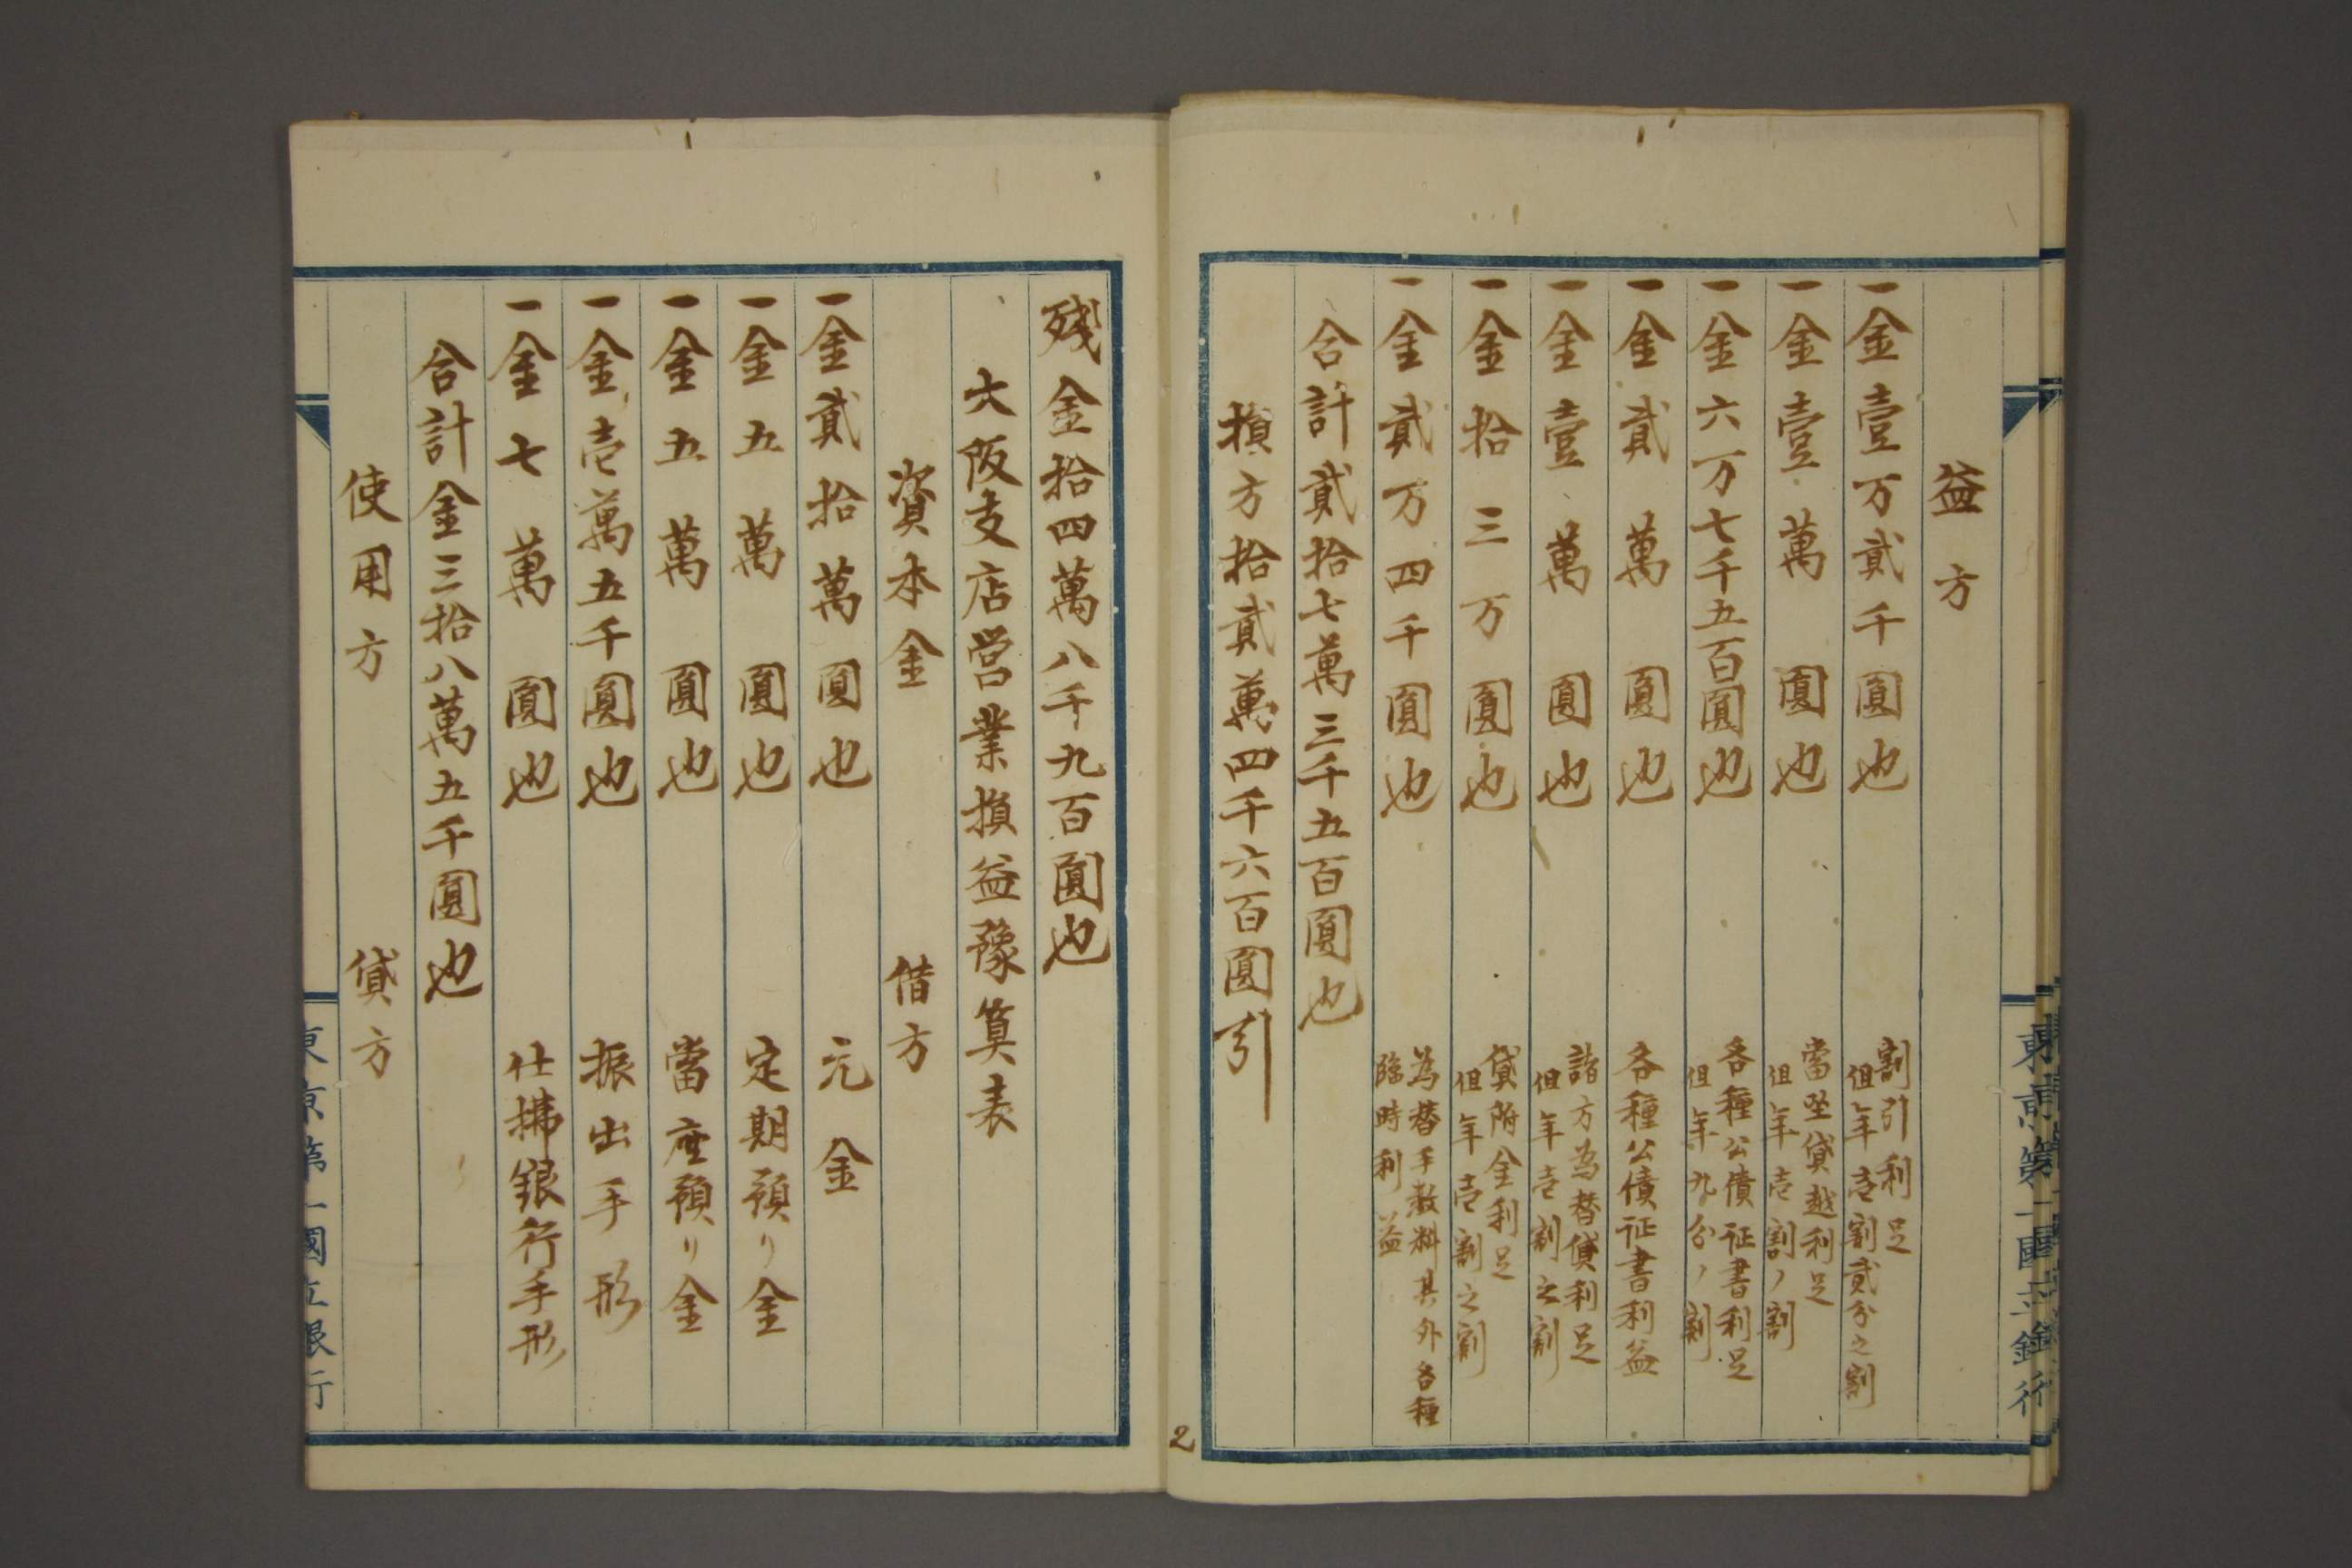 益方
一金壹万貳千圓也
割引利足
但年壱割貳分之割
一金壹萬圓也
當坐貸越利足
但年壱割ノ割
一金六万七千五百圓也
各種公債証書利足
但年九分ノ割
一金貳萬圓也
各種公債証書利益
一金壹萬圓也
諸方為替貸利足
但年壱割之割
一金拾三万圓也
貸附金利足
但年壱割之割
一金貳万四千圓也
為替手数料其外各種
臨時利益
合計貳拾七萬三千五百圓也
損方拾貳萬四千六百圓引
東京第一國立銀行
2
残金拾四萬八千九百圓也
大阪支店営業損益豫算表
資本金 借方
一金貳拾萬圓也 元金
一金五萬圓也 定期預り金
一金五萬圓也 當座預り金
一金壱萬五千圓也 振出手形
一金七萬圓也 仕拂銀行手形
合計金三拾八萬五千圓也
使用方 貸方
東京第一國立銀行